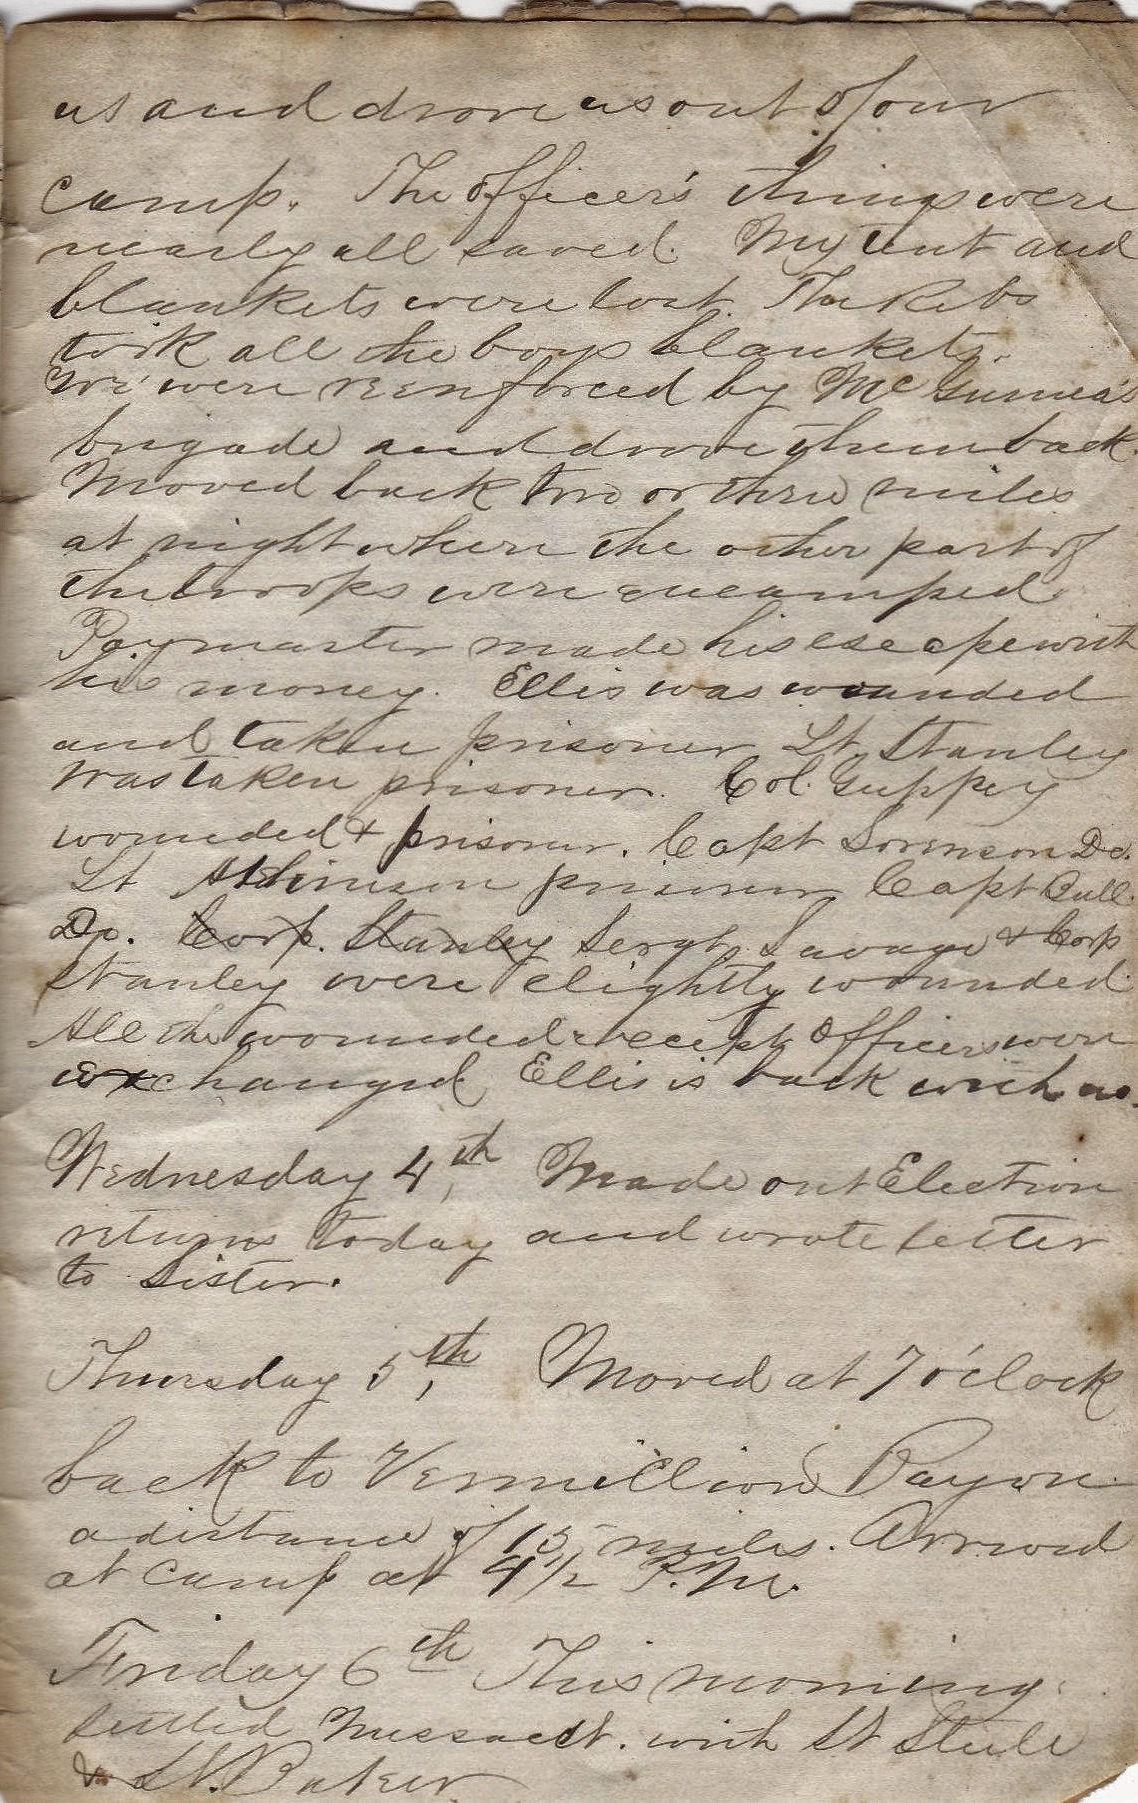 us and drove us out of our
camp. The officer's things were
nearly all saved. My tent and
blankets were lost. The Rebs
took all the boys blankets.
We were reenforced by McGinnea's
brigade and drove them back.
Moved back two or three miles
at night where the other part of
the troops were encamped
Paymaster made his escape with
his money. Ellis was wounded
and taken prisoner Lt. Stanley
was taken prisoner. Col. Guppey
wounded & prisoner. Capt Sorenson Do.
Lt Atkinson prisoner Capt Bull
Do. Corp. Stanley Sergt Savage & Corp
Stanley were slightly wounded
All the wounded except officers were
exchanged Ellis is back with us.
Wednesday 4th, Made out Election
returns today and wrote letter
to sister.
Thursday 5th, Moved at 7 o'clock
back to Vermillion Bayou
a distance of 15 miles. Arrived
at camp at 4 1/2 P.M.
Friday 6th This morning
settled Mess acct. with Lt Steele
& Lt. Baker